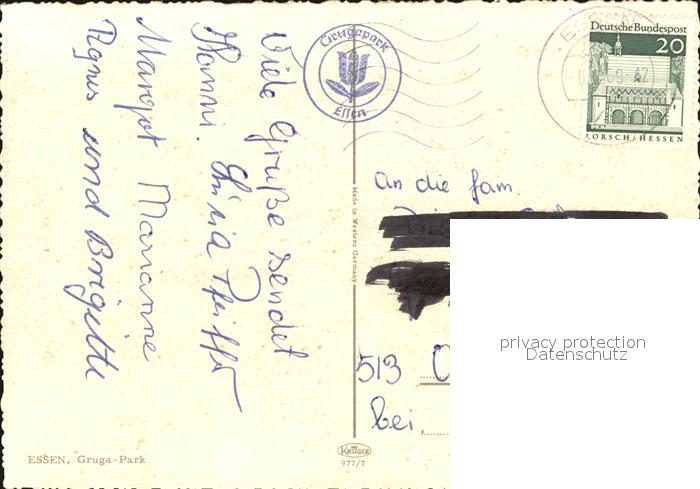 Viele Grüße sendet
Hanni.
Margot Marianne
Agnes und Brigitte
Grugapark
Essen
Deutsche Bundespost
20
LORSCH/HESSEN
Made in Western Germany
An die Fam.
513
bei
privacy protection
Datenschutz
KRÜGER
977/7
ESSEN, Gruga-Park